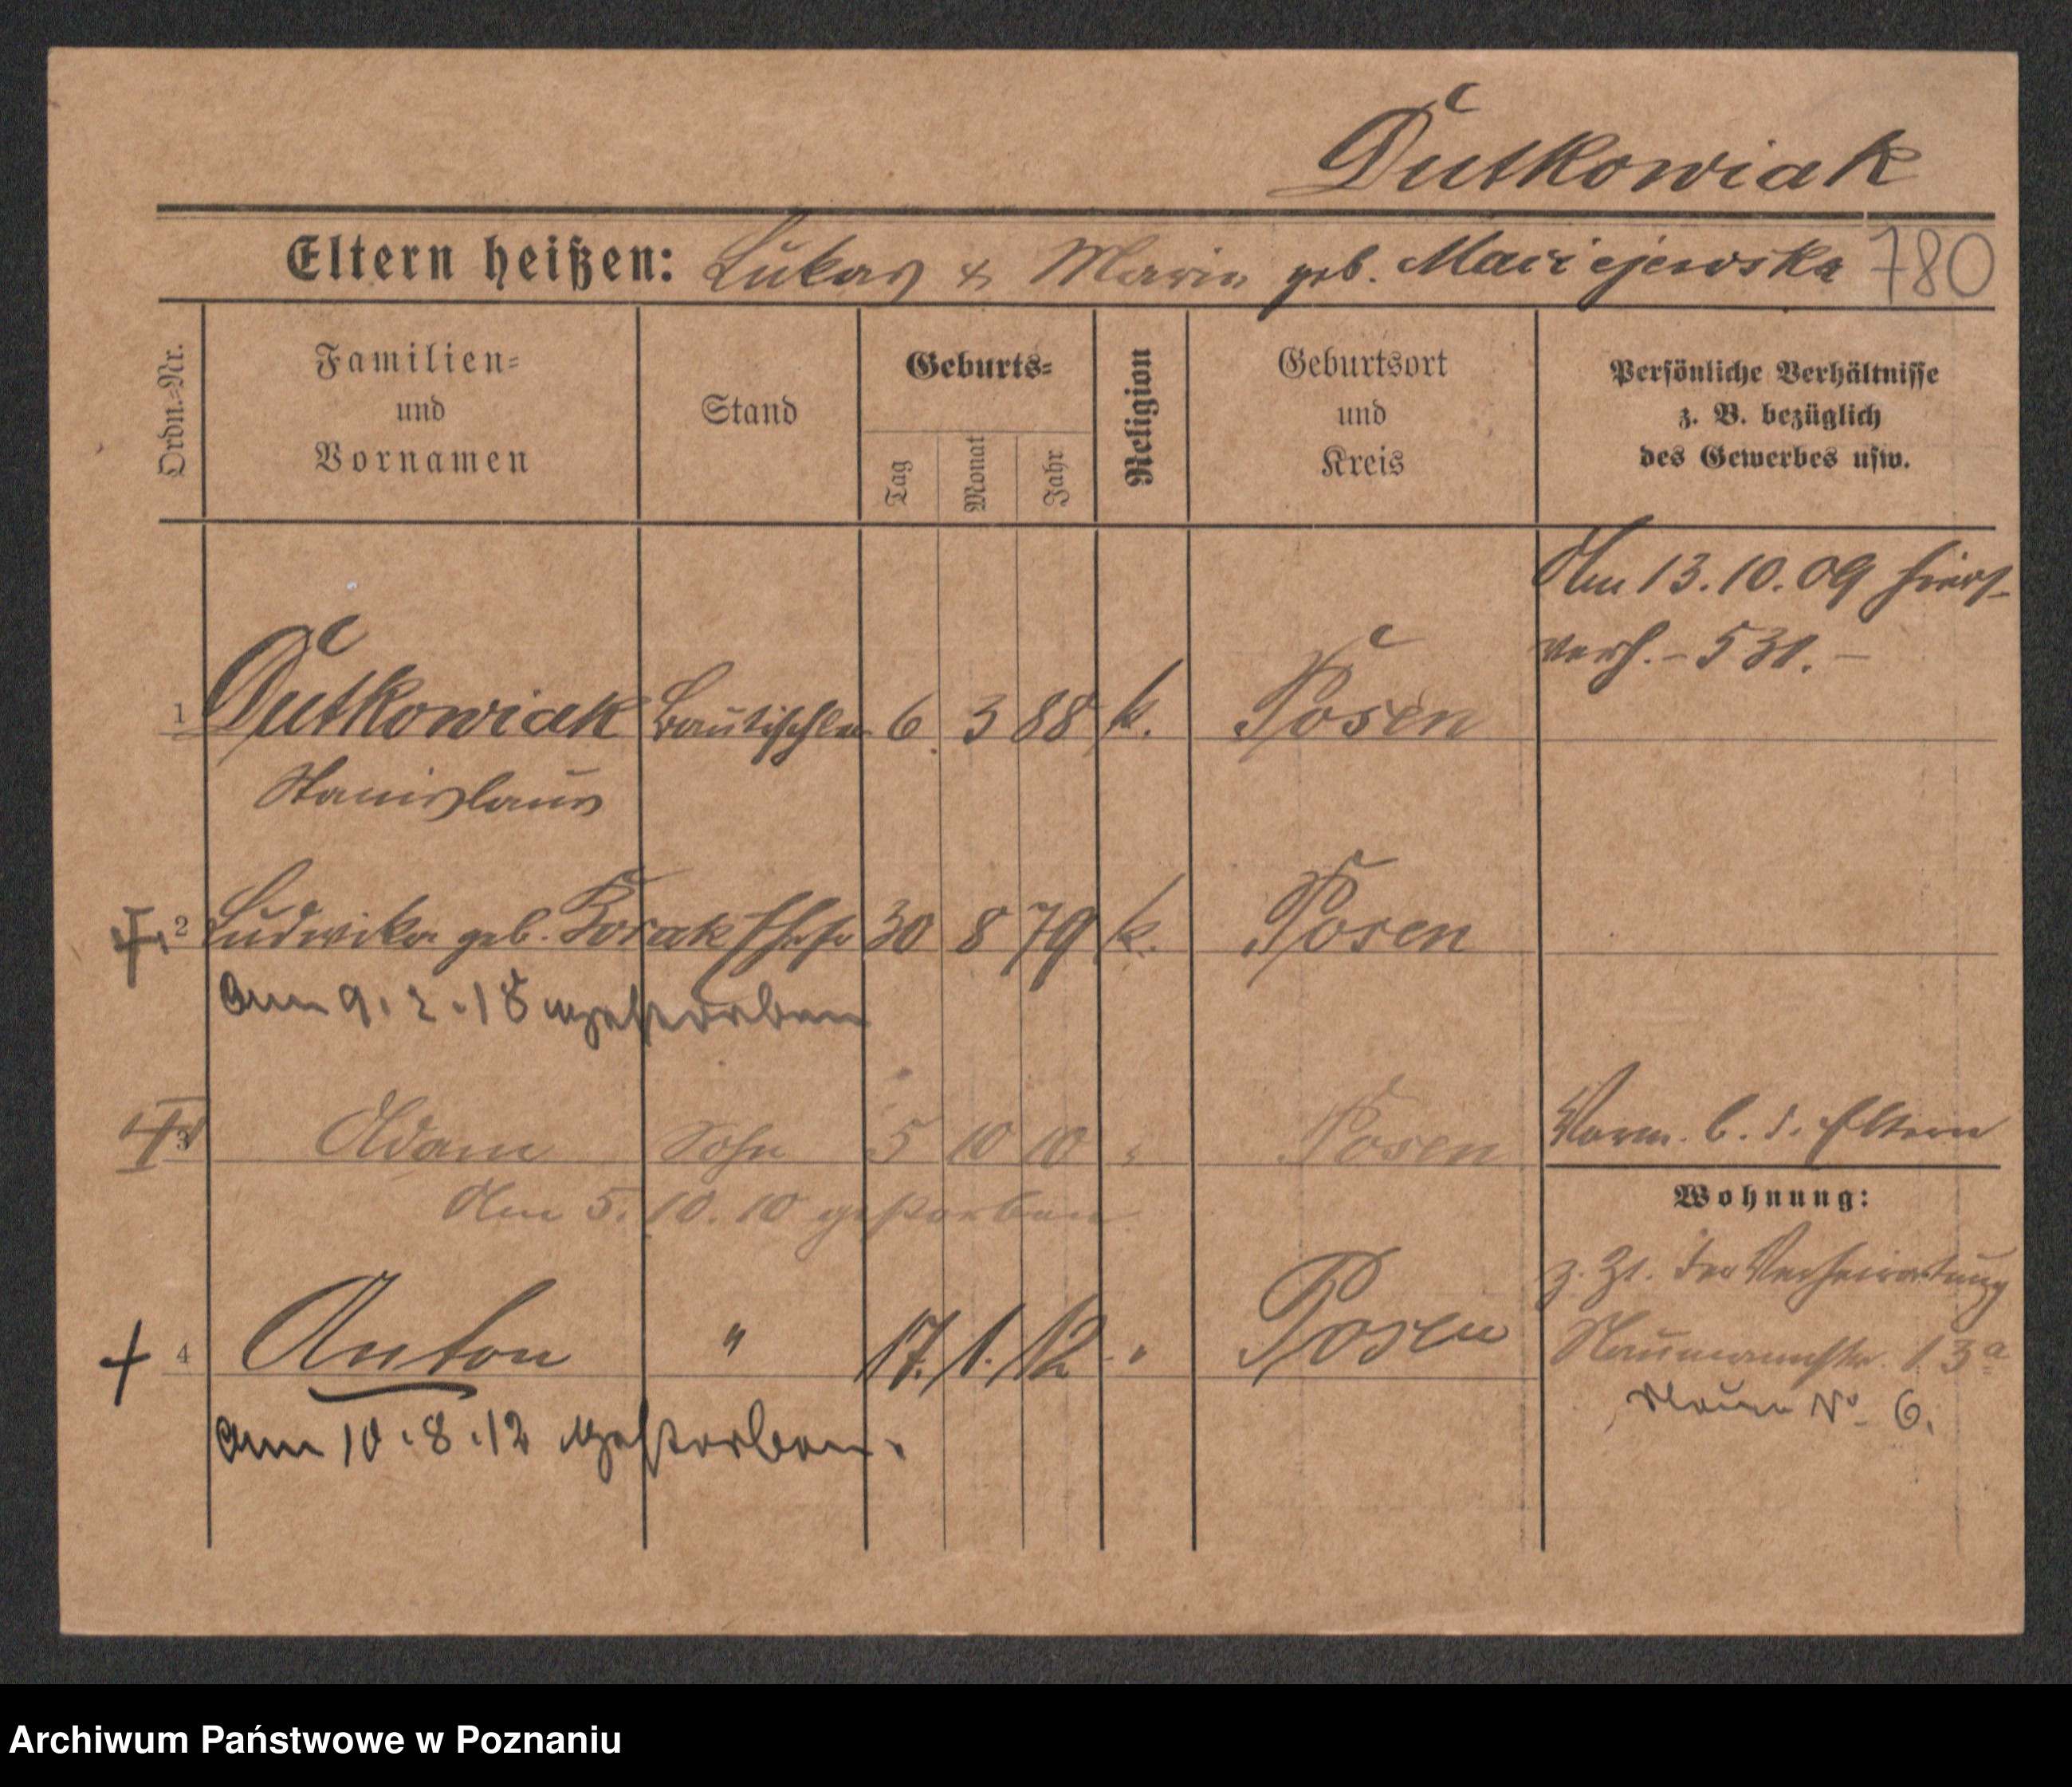 Dutkowiak
Eltern heißen: Lukas & Maria geb. Maciejewska 780
Ordn.-Nr.
Familien-
und
Vornamen
Stand
Geburts-
Tag
Monat
Jahr
Religion
Geburtsort
und
Kreis
Persönliche Verhältnisse
z. B. bezüglich
des Gewerbes usw.
Am 13.10.09 hier
verh. - 531. -
1 Dutkowiak Bautischler 6. 3 88 k. Posen
Stanislaus
2 Ludwika geb. Ehefr 30 8 79 k. Posen
am 9. 2. 18 gestorben
3 Adam Sohn 5 10 10 " Posen
Vorm. b. d. Eltern
Am 5. 10. 10 gestorben
Wohnung:
z. Zt. der Verheiratung
Naumannstr. 13a
4 Anton " 17. 1. 12 " Posen
No 6.
am 10. 8. 12 gestorben.
Archiwum Państwowe w Poznaniu